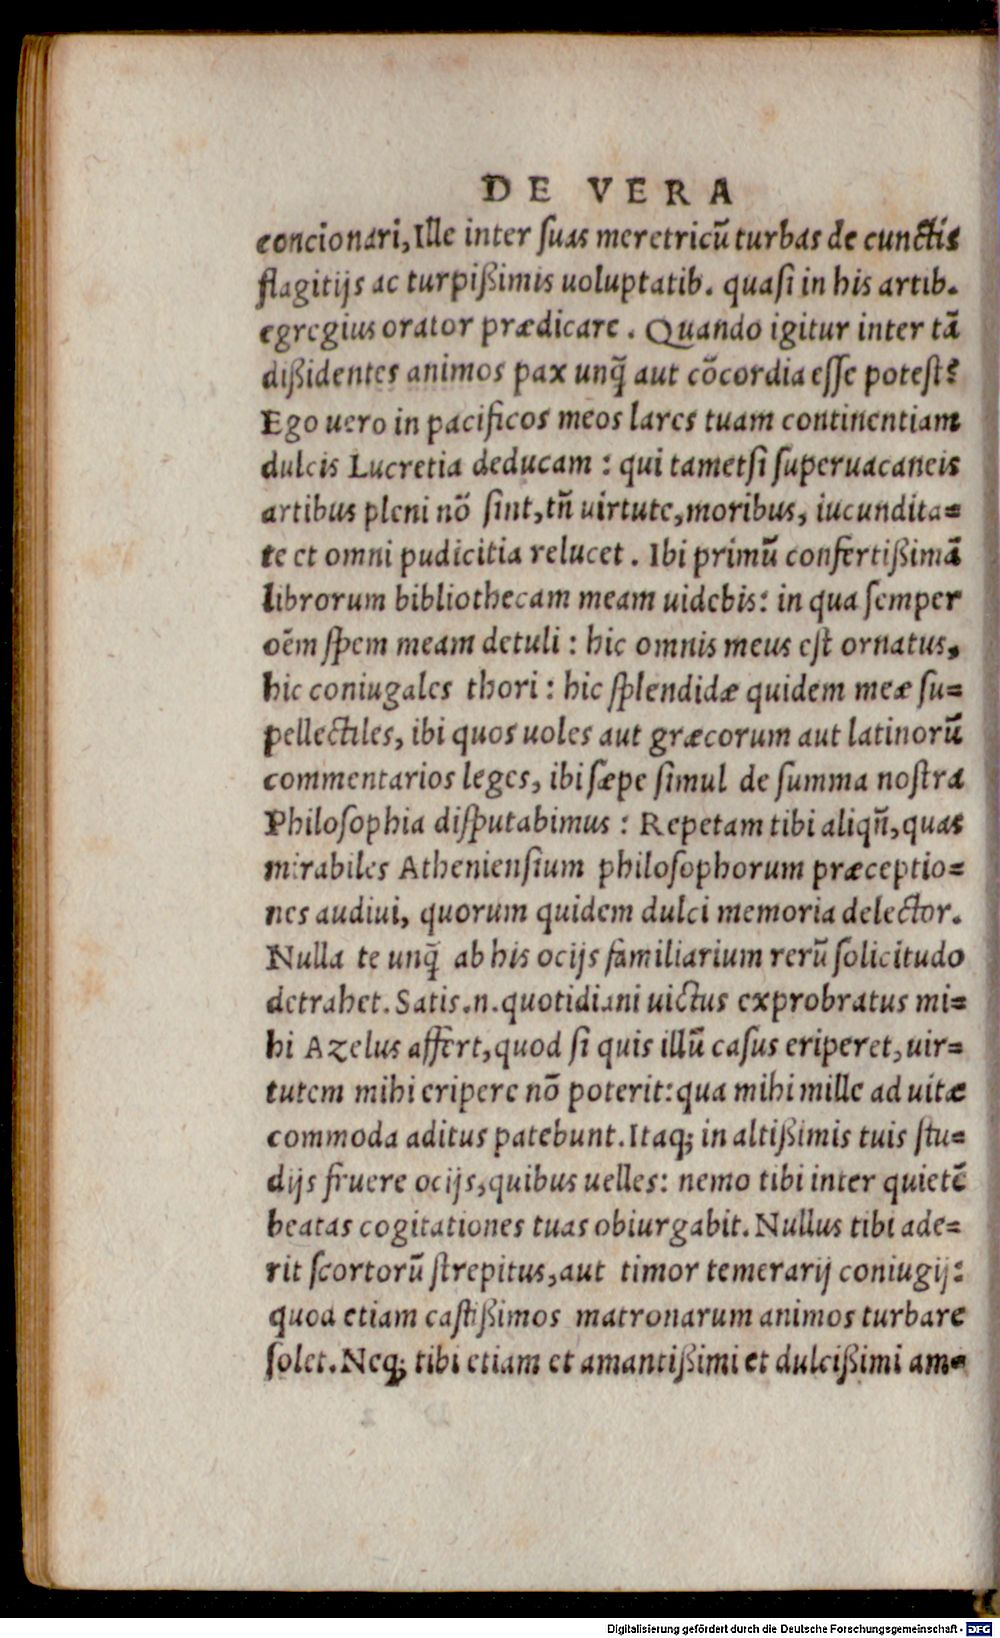 DE VERA
concionari, Ille inter ſuas meretricū turbas de cunctis
flagitijs ac turpißimis uoluptatib. quaſi in his artib.
egregius orator prædicare. Quando igitur inter tā
dißidentes animos pax unq̄ aut cōcordia eſſe poteſt?
Ego uero in pacificos meos lares tuam continentiam
dulcis Lucretia deducam: qui tametſi ſuperuacaneis
artibus pleni nō ſint, tñ uirtute, moribus, iucundita=
te et omni pudicitia relucet. Ibi primū confertißimā
librorum bibliothecam meam uidebis: in qua ſemper
oēm ſpem meam detuli: hic omnis meus eſt ornatus,
hic coniugales thori: hic ſplendidæ quidem meæ ſu=
pellectiles, ibi quos uoles aut græcorum aut latinorū
commentarios leges, ibi ſæpe ſimul de ſumma noſtra
Philoſophia diſputabimus: Repetam tibi aliqñ, quas
mirabiles Athenienſium philoſophorum præceptio=
nes audiui, quorum quidem dulci memoria delector.
Nulla te unq̄ ab his ocijs familiarium rerū ſolicitudo
detrahet. Satis.n. quotidiani uictus exprobratus mi=
hi Azelus affert, quod ſi quis illū caſus eriperet, uir=
tutem mihi eripere nō poterit: qua mihi mille ad uitæ
commoda aditus patebunt. Itaq; in altißimis tuis ſtu=
dijs fruere ocijs, quibus uelles: nemo tibi inter quietē
beatas cogitationes tuas obiurgabit. Nullus tibi ade=
rit ſcortorū ſtrepitus, aut timor temerarij coniugij:
quod etiam caſtißimos matronarum animos turbare
ſolet. Neq; tibi etiam et amantißimi et dulcißimi am=
Digitalisierung gefördert durch die Deutsche Forschungsgemeinschaft - DFG